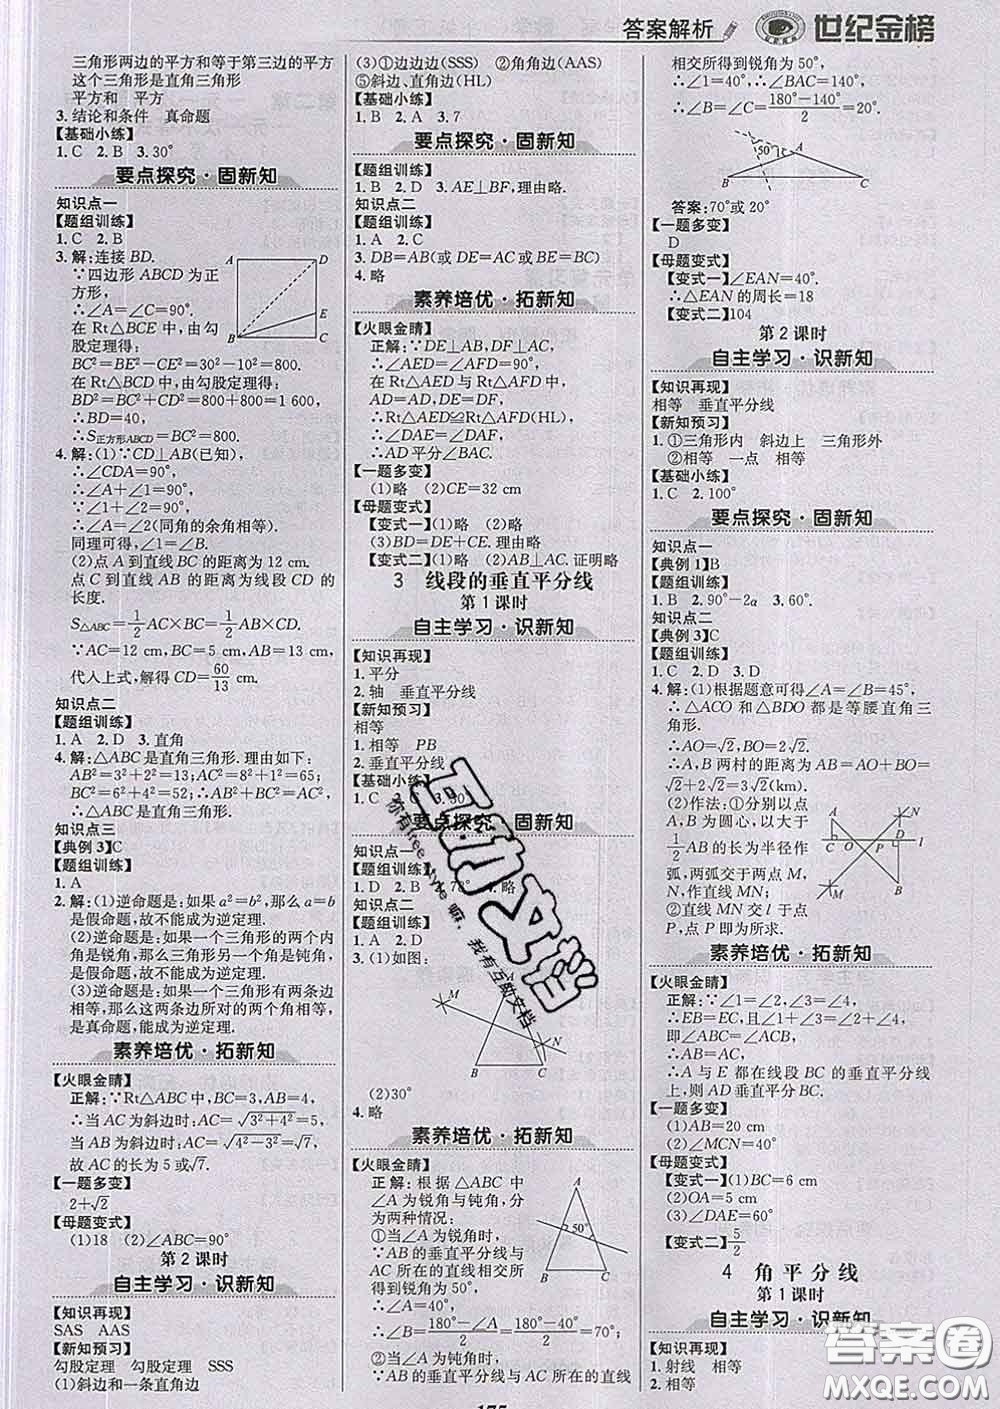 答案解析
世纪金榜
三角形两边的平方和等于第三边的平方
这个三角形是直角三角形
平方和 平方
3. 结论和条件 真命题
【基础小练】
1. C 2. B 3. 30°
要点探究·固新知
知识点一
【题组训练】
1. C 2. B
3. 解:连接 BD.
∵四边形 ABCD 为正方
形,
∴∠A=∠C=90°.
在 Rt△BCE 中,由勾
股定理得:
BC²=BE²-CE²=30²-10²=800
在 Rt△BCD 中,由勾股定理得:
BD²=BC²+CD²=800+800=1 600,
∴BD=40,
∴S正方形ABCD=BC²=800.
4. 解:(1)∵CD⊥AB(已知),
∴∠CDA=90°,
∴∠A+∠1=90°,
∴∠A=∠2(同角的余角相等).
同理可得,∠1=∠B.
(2)点 A 到直线 BC 的距离为 12 cm.
点 C 到直线 AB 的距离为线段 CD 的
长度.
S△ABC=1/2 AC×BC=1/2 AB×CD.
∵AC=12 cm,BC=5 cm,AB=13 cm,
代入上式,解得 CD=60/13 cm.
知识点二
【题组训练】
1. A 2. D 3. 直角
4. 解:△ABC 是直角三角形.理由如下:
AB²=3²+2²=13;AC²=8²+1²=65;
BC²=6²+4²=52;∴AB²+BC²=AC²;
∴△ABC 是直角三角形.
知识点三
【典例 3】C
【题组训练】
1. A
2. 解:(1)逆命题是:如果 a²=b²,那么 a=b
是假命题,故不能成为逆定理.
(2)逆命题是:如果一个三角形的两个内
角是锐角,那么三角形另一个角是钝角,是
假命题,故不能成为逆定理.
(3)逆命题是:如果一个三角形有两条边
相等,那么这两条边所对的两个角相等,
是真命题,能成为逆定理.
素养培优·拓新知
【火眼金睛】
正解:∵Rt△ABC 中,BC=3,AB=4,
∴当 AC 为斜边时:AC=√(3²+4²)=5,
当 AB 为斜边时:AC=√(4²-3²)=√7,
故 AC 的长为 5 或√7.
【一题多变】
2+√2
【母题变式】
(1)18 (2)∠ABC=90°
第 2 课时
自主学习·识新知
【知识再现】
SAS AAS
【新知预习】
勾股定理 勾股定理 SSS
(1)斜边和一条直角边
(3)①边边边(SSS) ②角角边(AAS)
⑤斜边、直角边(HL)
【基础小练】
1. B 2. A 3. 7
要点探究·固新知
【题组训练】
1. B 2. D 3. AE⊥BF,理由略.
知识点二
【题组训练】
1. A 2. C
3. DB=AB(或 DE=AC 或 BE=BC)
4. 略
素养培优·拓新知
【火眼金睛】
正解:∵DE⊥AB,DF⊥AC,
∴∠AED=∠AFD=90°,
在 Rt△AED 与 Rt△AFD 中,
AD=AD,DE=DF,
∴Rt△AED≌Rt△AFD(HL),
∴∠DAE=∠DAF,
∴AD 平分∠BAC.
【一题多变】
(1)略 (2)CE=32 cm
【母题变式】
【变式一】(1)略 (2)略
(3)BD=DE+CE.理由略
【变式二】(1)略 (2)AB⊥AC.证明略
3 线段的垂直平分线
第 1 课时
自主学习·识新知
【知识再现】
1. 平分
2. 轴 垂直平分线
【新知预习】
相等
1. 相等 PB
2. 垂直平分线
【基础小练】
1. C
要点探究·固新知
知识点一
【题组训练】
1. D 2. B
4. 略
知识点二
【题组训练】
1. A 2. D
3. (1)如图:
A
M
N
B C
(2)30°
4. 略
素养培优·拓新知
【火眼金睛】
正解:根据△ABC 中
∠A 为锐角与钝角,分
为两种情况:
①当∠A 为锐角时,
∵AB 的垂直平分线与
AC 所在的直线相交所
得到锐角为 50°,
∴∠A=40°,
∴∠B=(180°-∠A)/2=(180°-40°)/2=70°;
②当∠A 为钝角时,
∵AB 的垂直平分线与 AC 所在的直线
A
50°
B C
相交所得到锐角为 50°,
∴∠1=40°,∴∠BAC=140°,
∴∠B=∠C=(180°-140°)/2=20°.
50°
A
B C
答案:70°或 20°
【一题多变】
D
【母题变式】
【变式一】∠EAN=40°
∴△EAN 的周长=18
【变式二】104
第 2 课时
自主学习·识新知
【知识再现】
相等 垂直平分线
【新知预习】
1. ①三角形内 斜边上 三角形外
②相等 一点 相等
【基础小练】
1. C 2. 100°
要点探究·固新知
知识点一
【典例 1】B
【题组训练】
1. B 2. 90°-2α 3. 60°.
知识点二
【典例 3】C
【题组训练】
1. C 2. D 3. D
4. 解:(1)根据题意可得∠A=∠B=45°,
∴△ACO 和△BDO 都是等腰直角三
角形.
∴AO=√2,BO=2√2.
∴A,B 两村的距离为 AO+BO=
√2+2√2=3√2(km).
(2)作法:①分别以点
A,B 为圆心,以大于
1/2 AB 的长为半径作
弧,两弧交于两点 M,
N,作直线 MN;
②直线 MN 交 l 于点
P,点 P 即为所求.
素养培优·拓新知
【火眼金睛】
正解:∵∠1=∠2,∠3=∠4,
∴EB=EC,且∠1+∠3=∠2+∠4,
即∠ABC=∠ACB,
∴AB=AC,
∴A 与 E 都在线段 BC 的垂直平分线
上,则 AD 垂直平分 BC.
【一题多变】
(1)AB=20 cm
(2)∠MCN=40°
【母题变式】
【变式一】(1)BC=6 cm
(2)OA=5 cm
(3)∠DAE=60°
【变式二】5/2
4 角平分线
第 1 课时
自主学习·识新知
【知识再现】
1. 射线 相等
2. 相等
175
互助文档
你有free style嘛,我有互助文档
答案圈
MXQE.COM